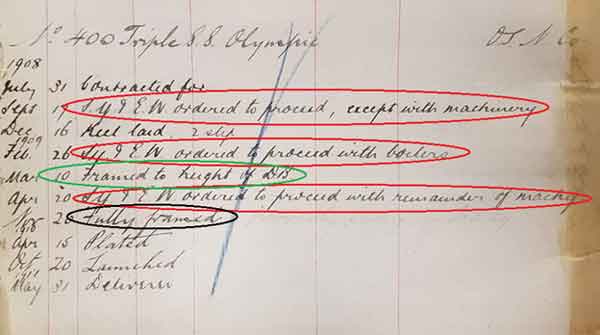 No 400 Triple S.S. Olympic O.S.N. Co
1908
July 31 Contracted for
Sept 17 S.Y & E.W ordered to proceed, except with machinery
Dec 16 Keel laid, 2 slip
1909
Feb. 26 S.Y & E.W ordered to proceed with boilers
Mar 10 Framed to height of D.B
Apr 20 S.Y & E.W ordered to proceed with remainder of machy
Nov 20 Fully framed
1910
Apr 15 Plated
Oct 20 Launched
1911
May 31 Delivered